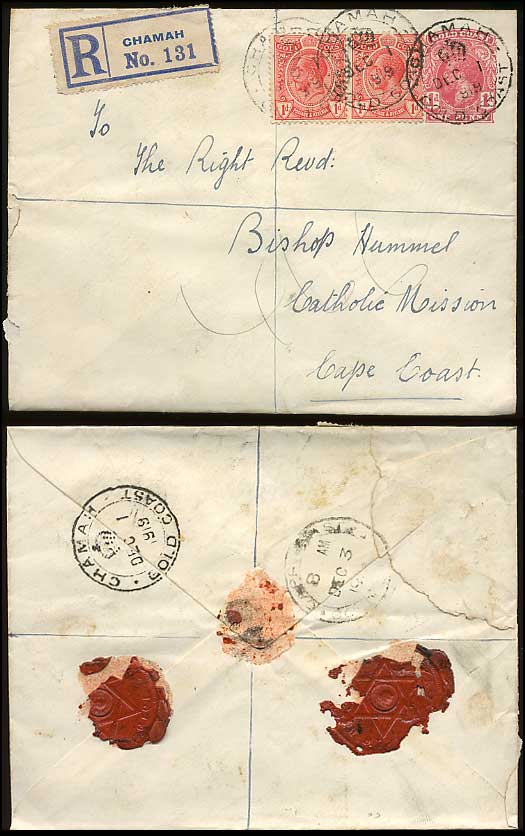 R
CHAMAH
No. 131
GOLD COAST
1d 1d
1d 1d
CHAMAH
DEC
1919
GOLD COAST
To
The Right Revd:
Bishop Hummel
Catholic Mission
Cape Coast.
CHAMAH
DEC
1
1919
GOLD COAST
8 AM
DEC 3
19